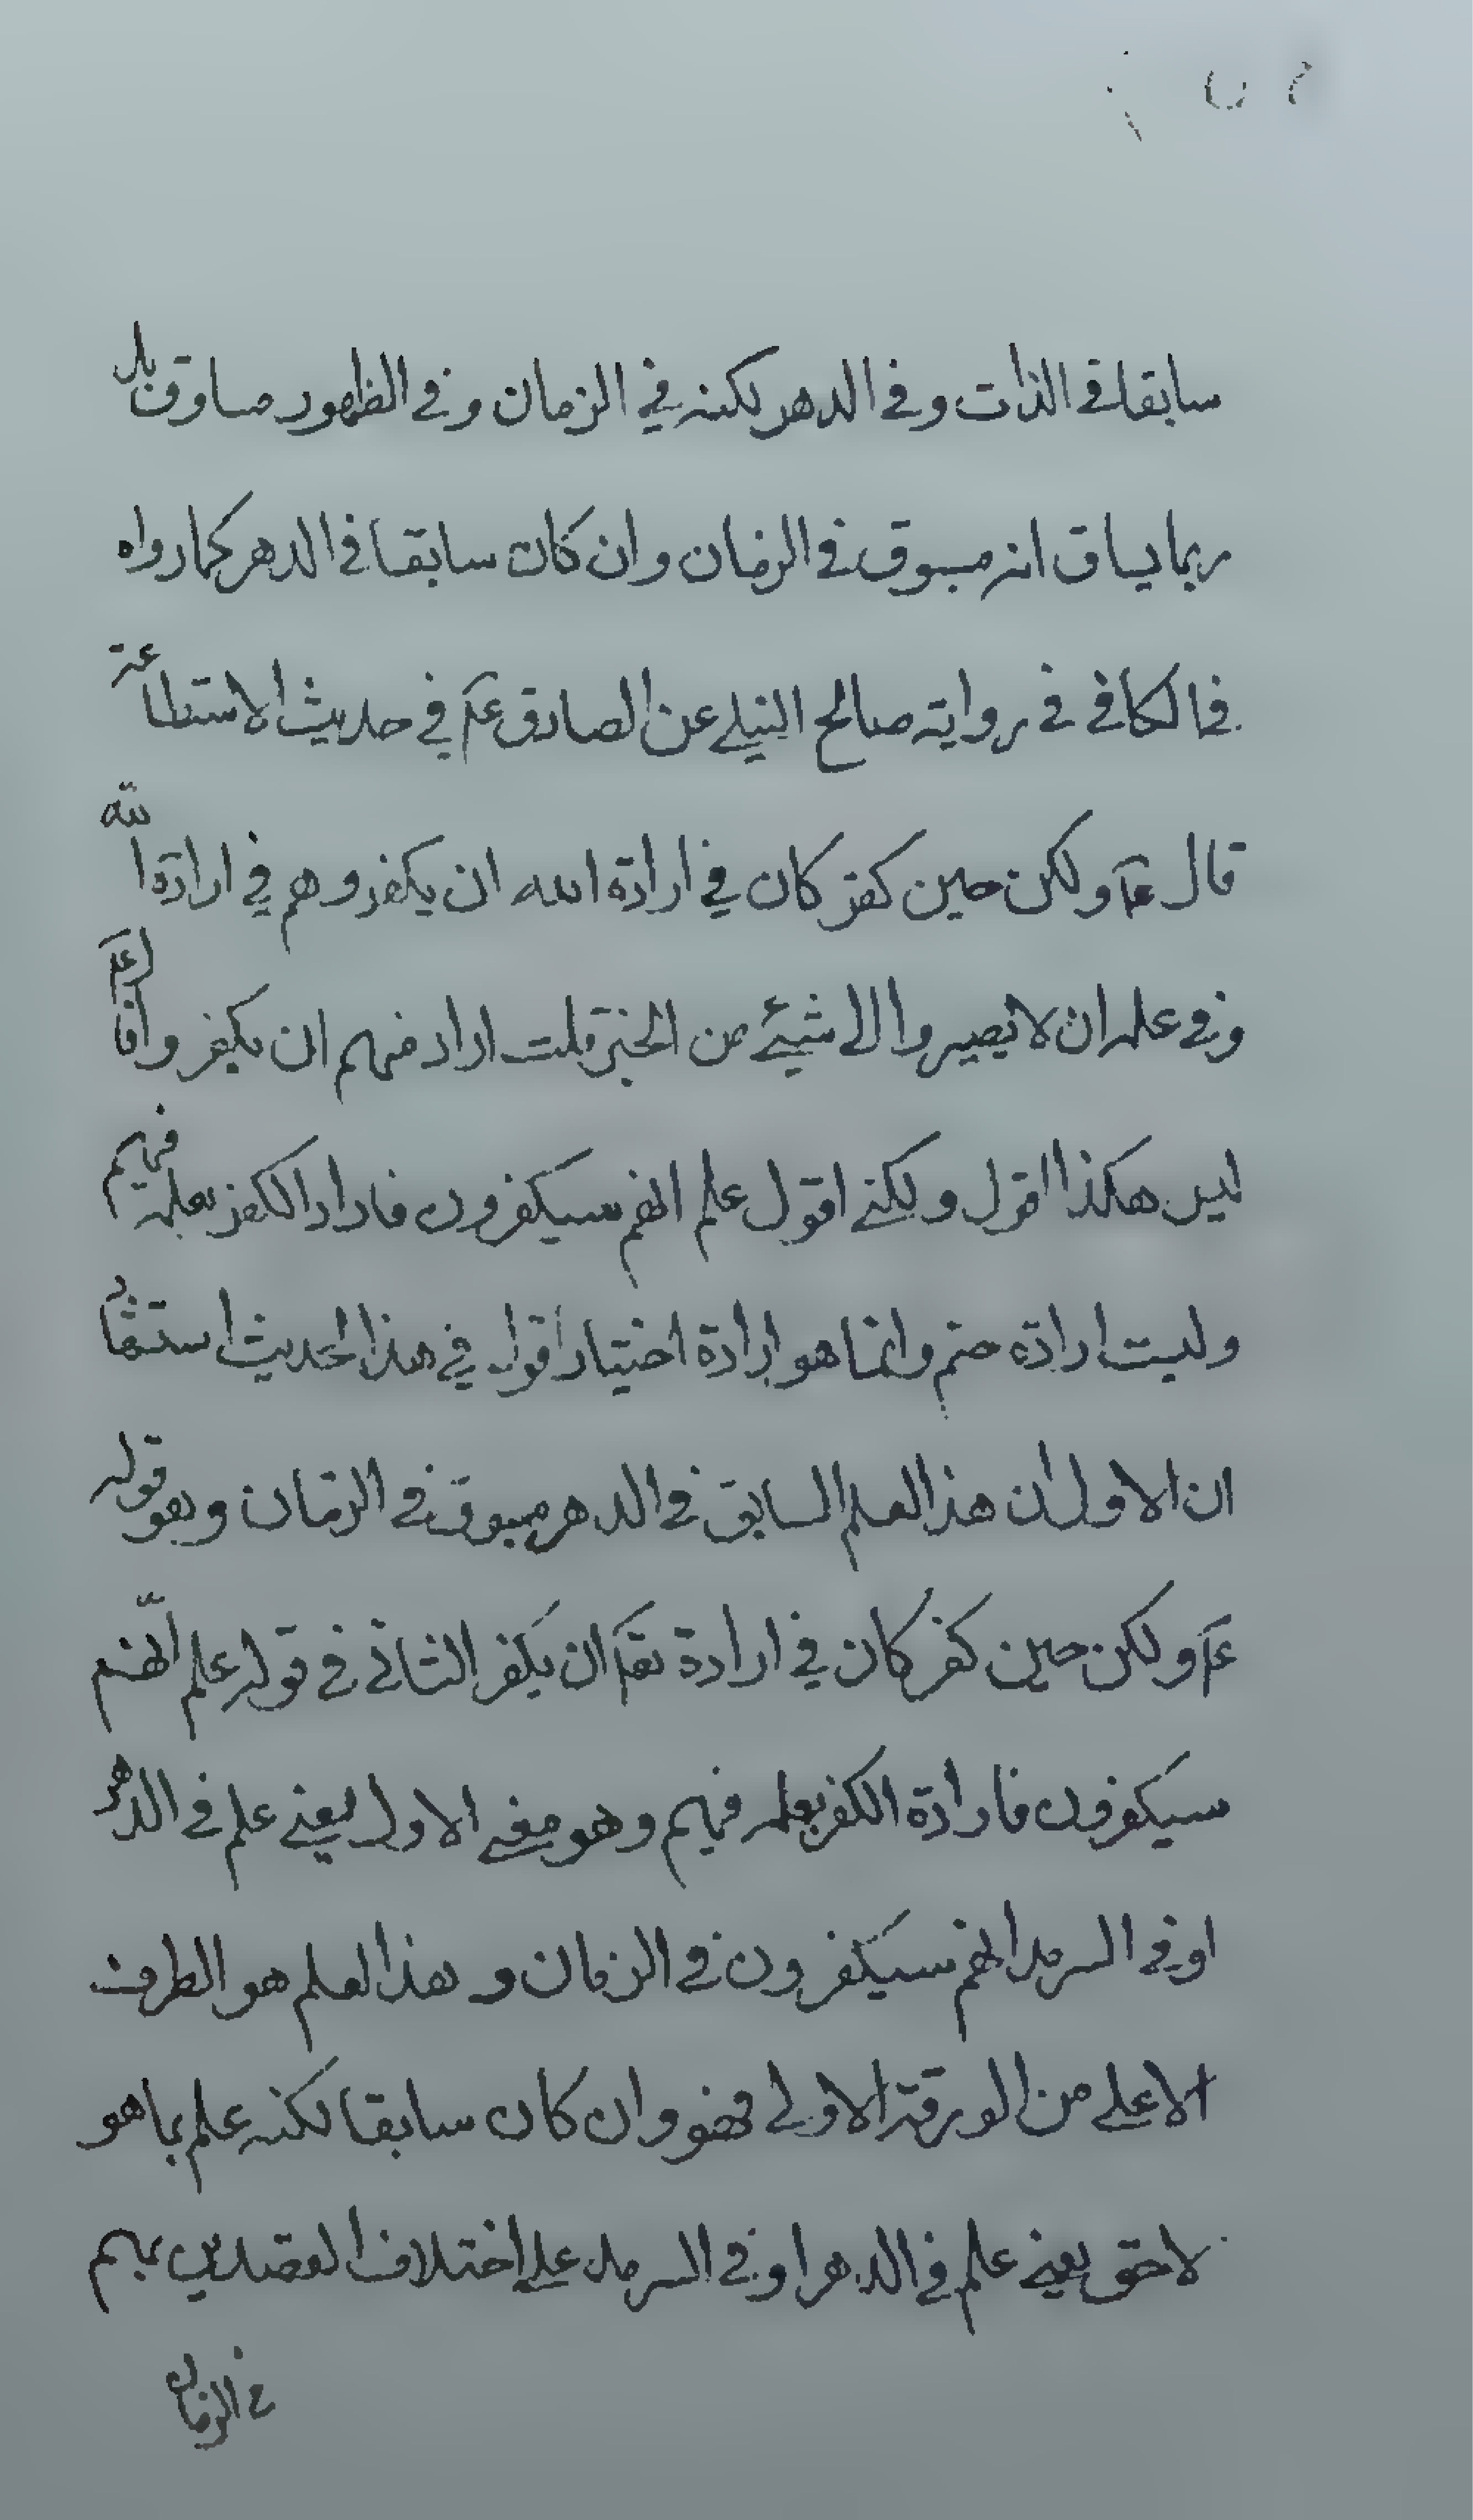 سابقا في الذات وفي الدهر لكنه في الزمان وفي الظهور مساوق بل
ربما يساق انه مسبوق في الزمان وان كان سابقا في الدهر كما رواه
في الكافي في رواية صالح النيلي عن الصادق عم في حديث الاستطاعة
قال عم ولكن حين كفر كان في ارادة الله ان يكفر وهم في ارادة الله
وفي علمه ان لا يصيروا الى شيئ من الخير قلت اراد منهم ان يكفروا قال عم
ليس هكذا اقول ولكني اقول علم انهم سيكفرون فاراد الكفر لعلمه فيهم
وليست ارادة حتم وانما هو ارادة اختيار اقول في هذا الحديث استشهاد
ان الاول ان هذا العلم السابق في الدهر مسبوق في الزمان وهو قوله
عم ولكن حين كفر كان في ارادة تعا ان يكفر الثاني في قوله علم انّهم
سيكفرون فارادة الكفر بعلمه فيهم وهو معنى الاول يعني علم في الدهر
او في السرمد انهم سيكفرون في الزمان وهذا العلم هو الطرف
الاعلى من الورقة الاولى فهو وان كان سابقا لكنه علم بما هو
لاحق يعني علم في الدهر او في السرمد على اختلاف القصدين بهم
في الزمان